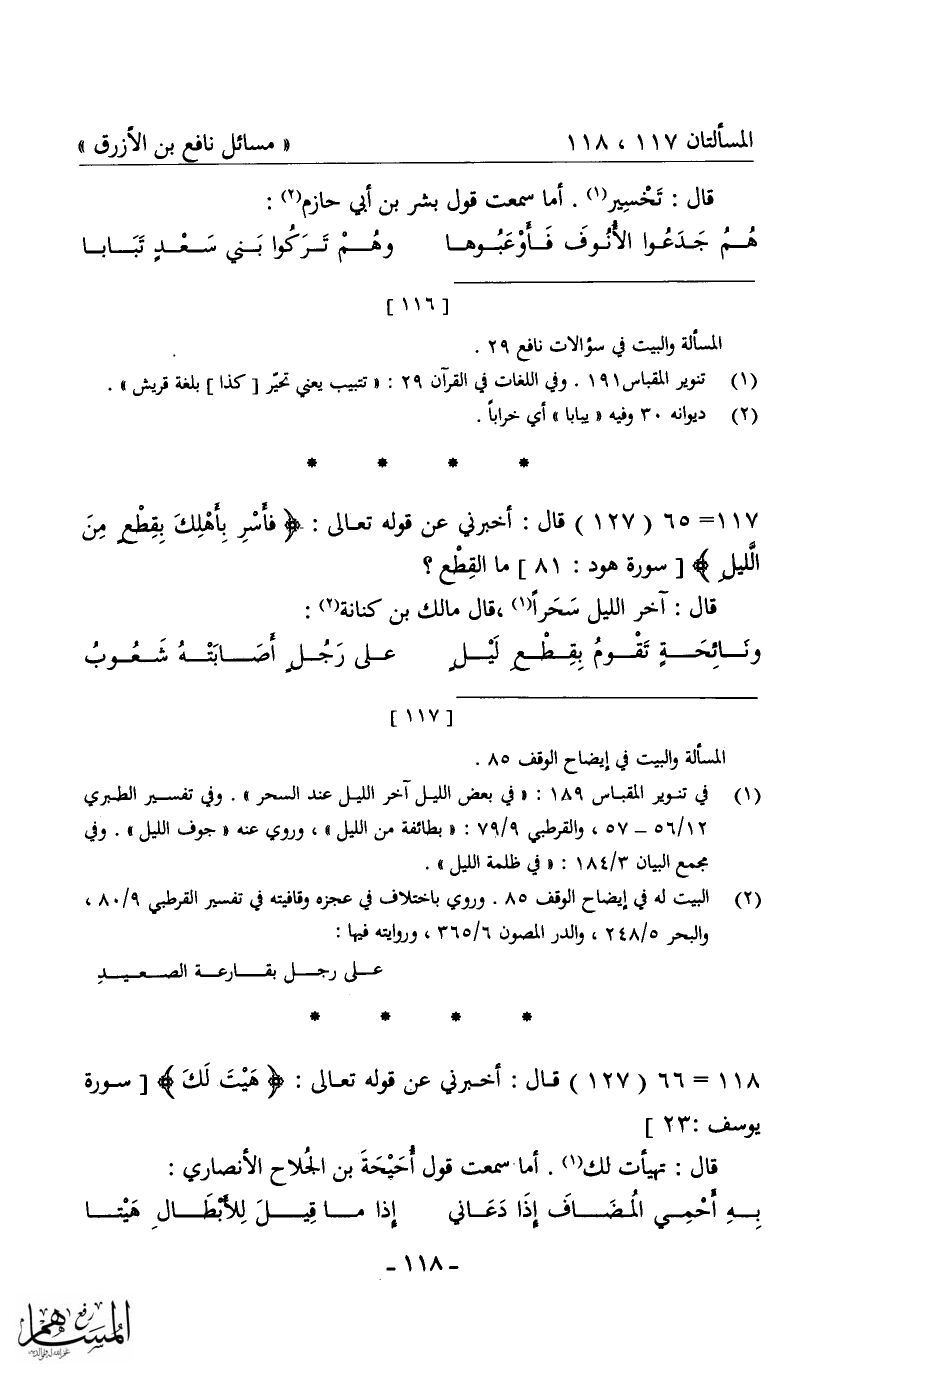 المسألتان ١١٧ ، ١١٨ « مسائل نافع بن الأزرق »
قال : تَخْسِير(١) . أما سمعت قول بشر بن أبي حازم(٢) :
هُمُ جَدَعُوا الأُنُوفَ فَأَوْعَبُوها وهُمْ تَرَكُوا بَني سَعْدٍ تَبَابا
[ ١١٦ ]
المسألة والبيت في سؤالات نافع ٢٩ .
(١) تنوير المقباس ١٩١ . وفي اللغات في القرآن ٢٩ : « تتبيب يعني تحيّر [ كذا ] بلغة قريش » .
(٢) ديوانه ٣٠ وفيه « يبابا » أي خراباً .
* * * *
١١٧= ٦٥ ( ١٢٧ ) قال : أخبرني عن قوله تعالى : ﴿ فأَسْرِ بِأَهْلِكَ بِقِطْعٍ مِنَ
الَّليلِ ﴾ [ سورة هود : ٨١ ] ما القِطْع ؟
قال : آخر الليل سَحَراً(١) ،قال مالك بن كنانة(٢) :
ونَائِحَةٍ تَقْومُ بِقِطْعِ لَيْلٍ على رَجُلٍ أَصَابَتْهُ شَعُوبُ
[ ١١٧ ]
المسألة والبيت في إيضاح الوقف ٨٥ .
(١) في تنوير المقباس ١٨٩ : « في بعض الليل آخر الليل عند السحر » . وفي تفسير الطبري
١٢/‏٥٦ – ٥٧ ، والقرطبي ٩/‏٧٩ : « بطائفة من الليل » ، وروي عنه « جوف الليل » . وفي
مجمع البيان ٣/‏١٨٤ : « في ظلمة الليل » .
(٢) البيت له في إيضاح الوقف ٨٥ . وروي باختلاف في عجزه وقافيته في تفسير القرطبي ٩/‏٨٠ ،
والبحر ٥/‏٢٤٨ ، والدر المصون ٦/‏٣٦٥ ، وروايته فيها :
على رجل بقارعة الصعيدِ
* * * *
١١٨ = ٦٦ ( ١٢٧ ) قال : أخبرني عن قوله تعالى : ﴿ هَيْتَ لَكَ ﴾ [ سورة
يوسف :٢٣ ]
قال : تهيأت لك(١) . أما سمعت قول أُحَيْحَةَ بن الجُلاح الأنصاري :
بِهِ أَحْمِي الْمُضَافَ إِذَا دَعَاني إذا ما قِيلَ لِلأَبْطَالِ هَيْتا
– ١١٨ –
رفع
المساهم